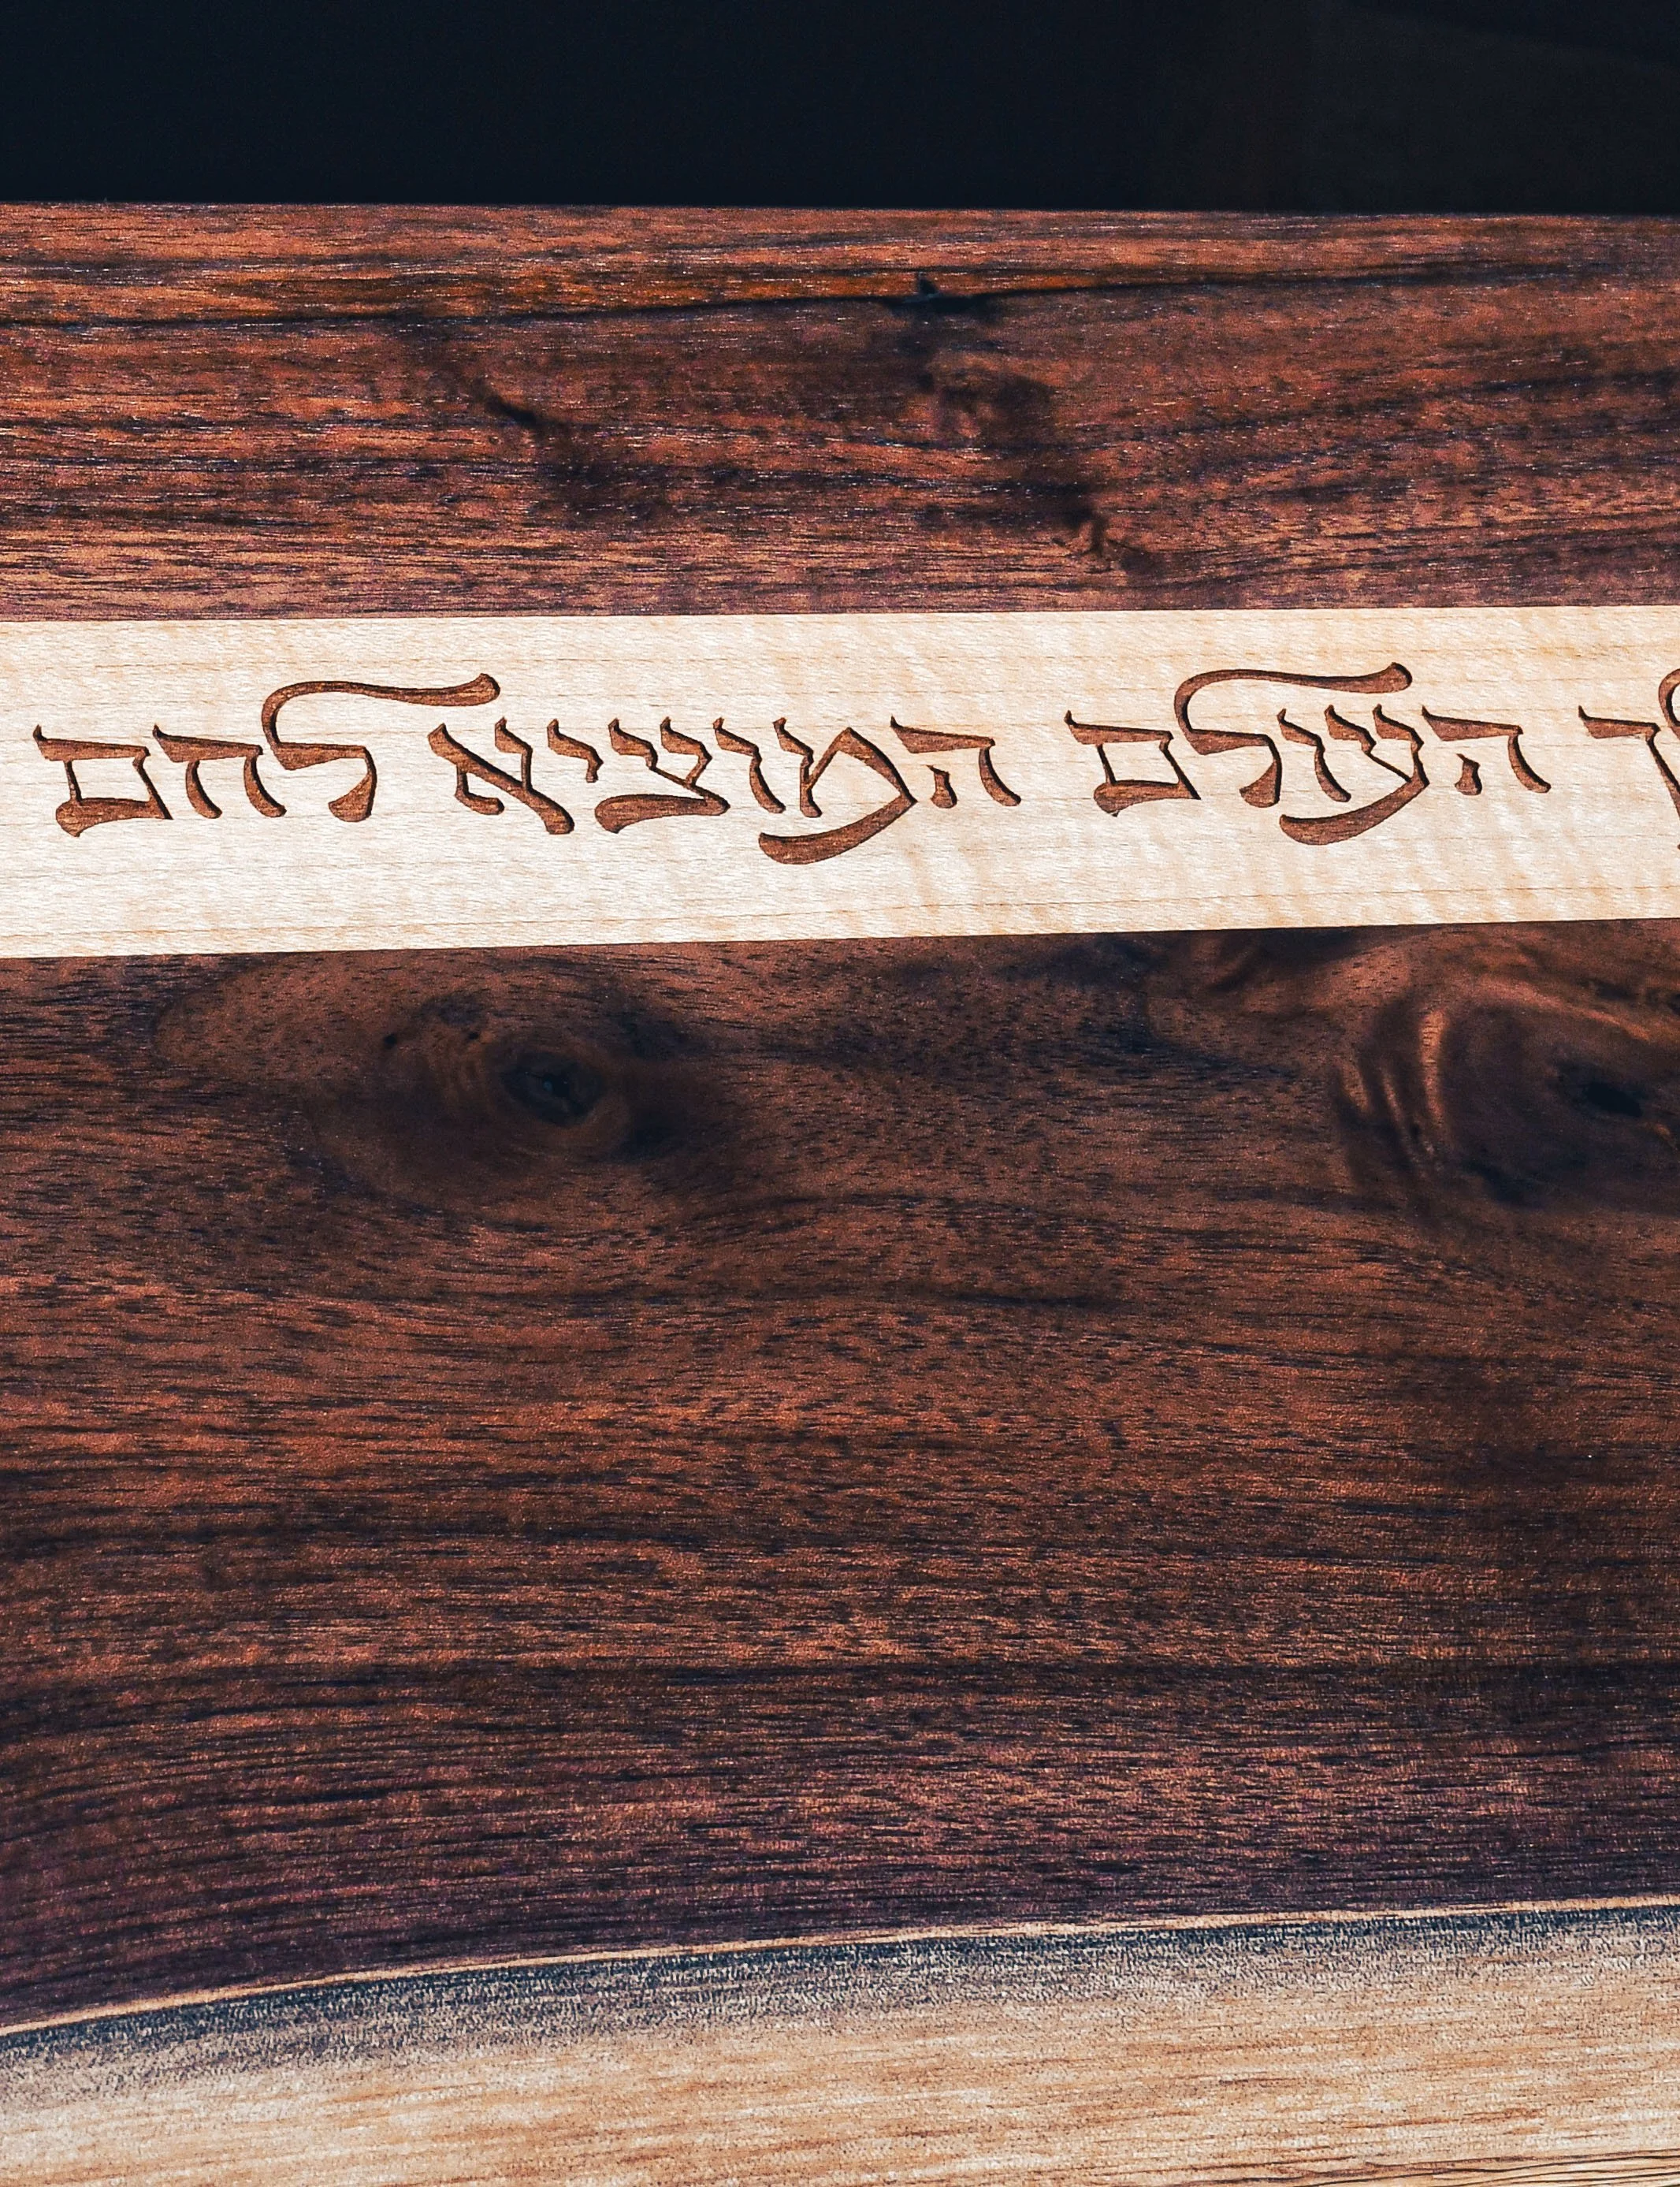 העולם המוציא לחם